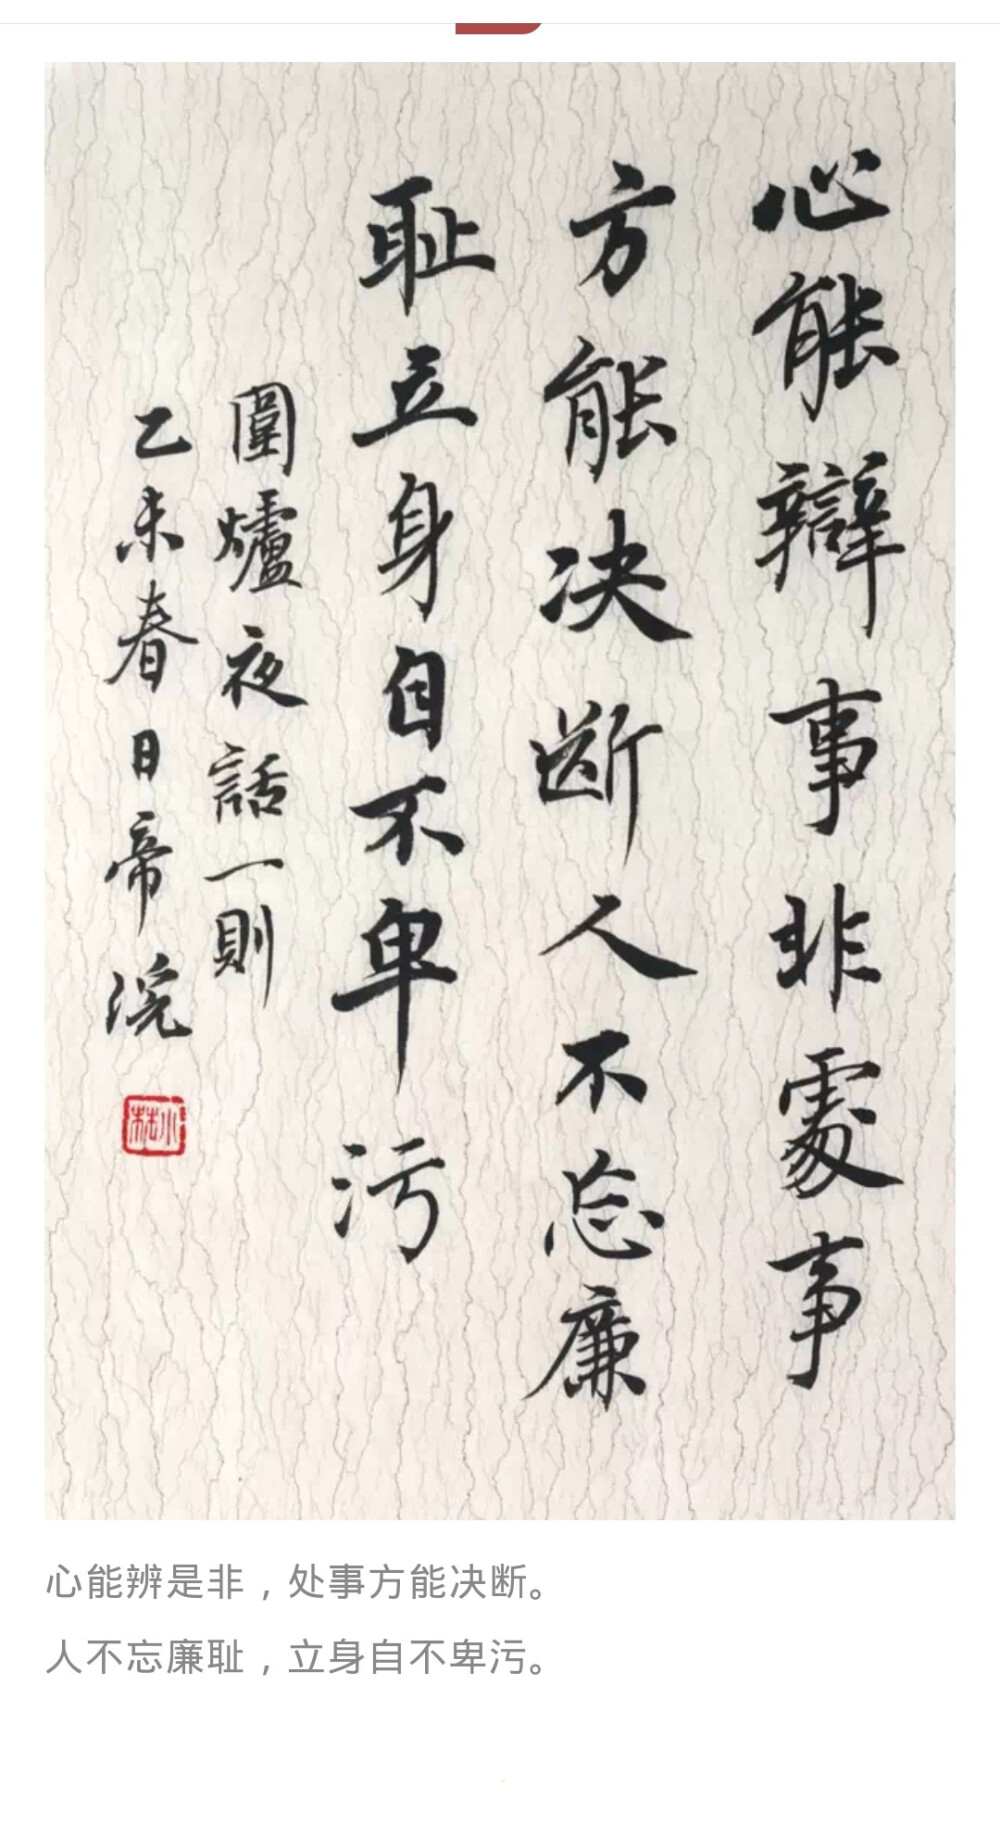 心能辯事非處事
方能决断人不忘廉
耻立身自不卑污
圍爐夜話一則
乙未春日帝浣
心能辨是非，处事方能决断。
人不忘廉耻，立身自不卑污。